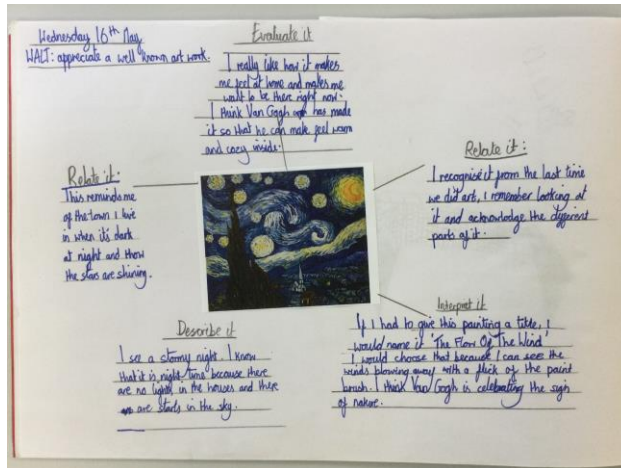 Wednesday 16th May
WALT: appreciate a well known art work.
Evaluate it
I really like how it makes
me feel at home and makes me
want to be there right now.
I think Van Gogh has made
it so that he can make feel warm
and cozy inside.
Relate it:
This reminds me
of the town I live
in when it's dark
at night and
the stars are shining.
Relate it:
I recognise it from the last time
we did art, I remember looking at
it and acknowledge the different
parts of it.
Describe it
I see a stormy night. I know
that it is night time because there
are no lights in the houses and there
are stars in the sky.
Interpret it
If I had to give this painting a title, I
would name it 'The Flow Of The Wind'
I would choose that because I can see the
winds blowing away with a flick of the paint
brush. I think Van Gogh is celebrating the sigh
of nature.